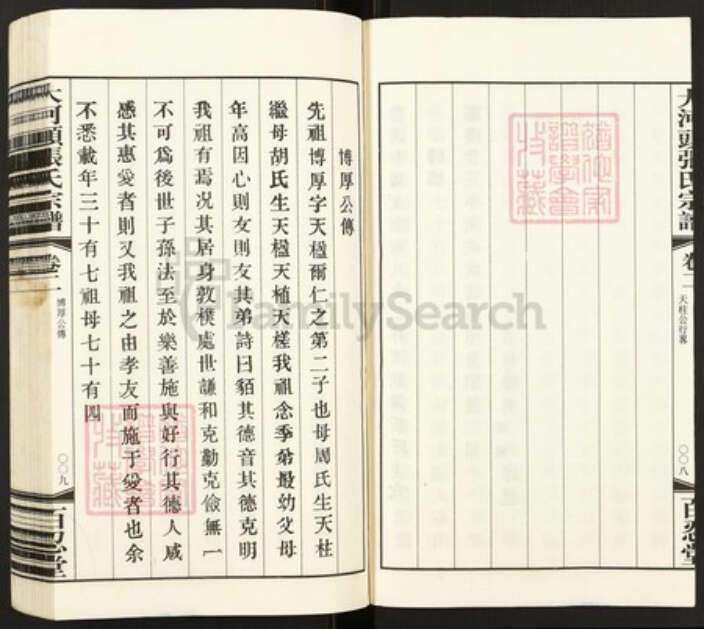 大河頭張氏宗譜
卷二
天柱公行畧
〇〇八
百忍堂
博厚公傳
先祖博厚字天楹爾仁之第二子也母周氏生天柱
繼母胡氏生天楹天植天槎我祖念季弟最幼父母
年高因心則友則友其弟詩曰貊其德音其德克明
我祖有焉况其居身敦樸處世謙和克勤克儉無一
不可爲後世子孫法至於樂善施與好行其德人咸
感其惠愛者則又我祖之由孝友而施于愛者也余
不悉載年三十有七祖母七十有四
大河頭張氏宗譜
卷二
博厚公傳
〇〇九
百忍堂
FamilySearch